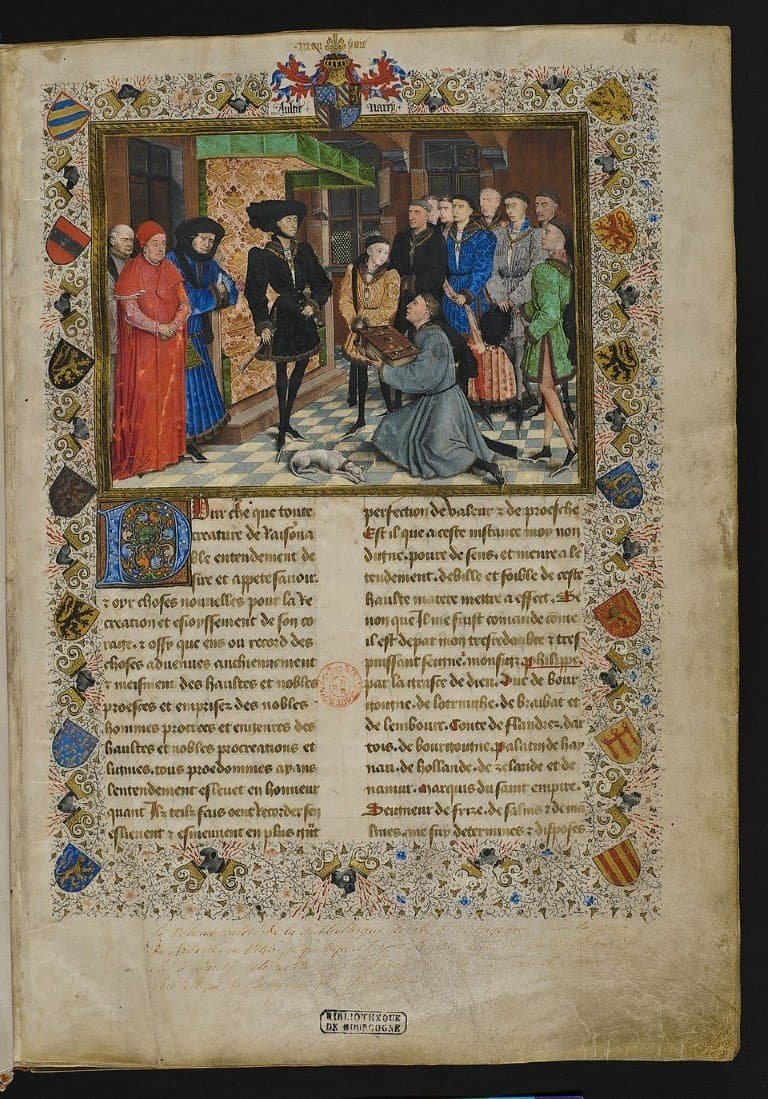 Aultre
narey
Pour che que toute
creature de raisona
ble entendement de
sire et appete sauoir
⁊ oyr choses nouuelles pour la re
creation et esioyssement de son co
rage. ⁊ ossy que ens ou record des
choses aduenues anchiennement
⁊ meisment des haultes et nobles
proesces et emprises des nobles
hommes procrees et engenres des
haultes et nobles procreations et
lignies. tous proedommes ayans
lentendement esleuet en honneur
quant Ilz telz fais oent recorder sen
eslieuent et esmeuuent en plus grāt
perfection de valeur ⁊ de proesche
Est il que a ceste instance moy non
digne. poure de sens. et menre
tendement. debille et foible de ceste
haulte matere mettre a effect. Se
non que Il me fuist comande come
il est de par mon tresredoubte ⁊ tres
puissant seigneʳ. monsigʳ. phīlippe
par la grasce de dieu. Duc de bour
goigne. de lotringhe. de brabant et
de lembourc. Conte de flandrez. dar
tois. de bourgoigne. palatin de hay
nau. de hollande. de zelande et de
namur. Marquis du saint empire.
Seigneur de frize. de salins ⁊ de ma
lines. que suy determines ⁊ disposes
BIBLIOTHEQUE
DE BOURGOGNE